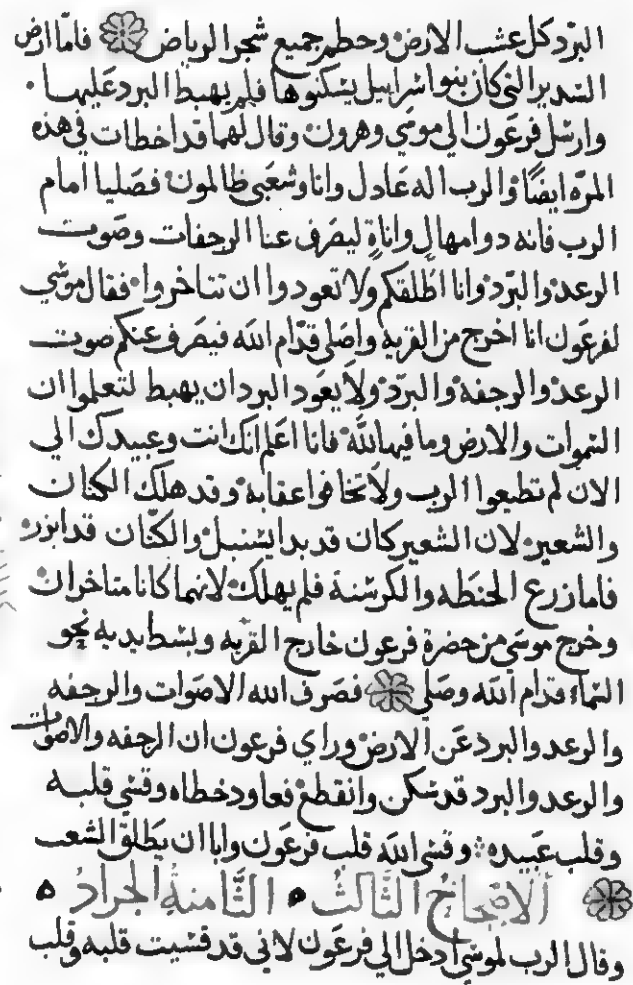 البرد كل عشب الارض وحطم جميع شجر الرياض فاما ارض
السدير التي كان بنوا سراييل يسكنوها فلم يهبط البرد عليها
وارسل فرعون الي موسي وهرون وقال لهما قد اخطات في هذه
المره ايضًا والرب اله عادل وانا وشعبي ظالمون فصليا امام
الرب فانه دوا مهال واناةٍ ليصرف عنا الرجفات وصوت
الرعد والبرد وانا اطلقكم ولا تعودوا ان تتاخروا فقال موسي
لفرعون انا اخرج من القريه واصلي قدام الله فيصرف عنكم صوت
الرعد والرجفه والبرد ولا يعود البرد ان يهبط لتعلموا ان
السموات والارض وما فيها لله فانا اعلم انك انت وعبيدك الي
الان لم تطيعوا الرب ولا تخافوا عقابه وقد هلك الكتان
والشعير لان الشعير كان قد بدا يسنبل والكتان قد ابزر
فاما زرع الحنطه والكرسنة فلم يهلك لانهما كانا متاخران
وخرج موسي من حضرة فرعون خارج القريه وبسط يديه نحو
السماء قدام الله وصلي فصرف الله الاصوات والرجفه
والرعد والبرد عن الارض وراي فرعون ان الرجفه والاصوات
والرعد والبرد قد سكن وانقطع فعاود خطاه وقسي قلبه
وقلب عبيده وقسي الله قلب فرعون وابا ان يطلق الشعب
الاصحاح الثالث ه الثامنة الجراد ه
وقال الرب لموسي ادخل الي فرعون لاني قد قسيت قلبه وقلب